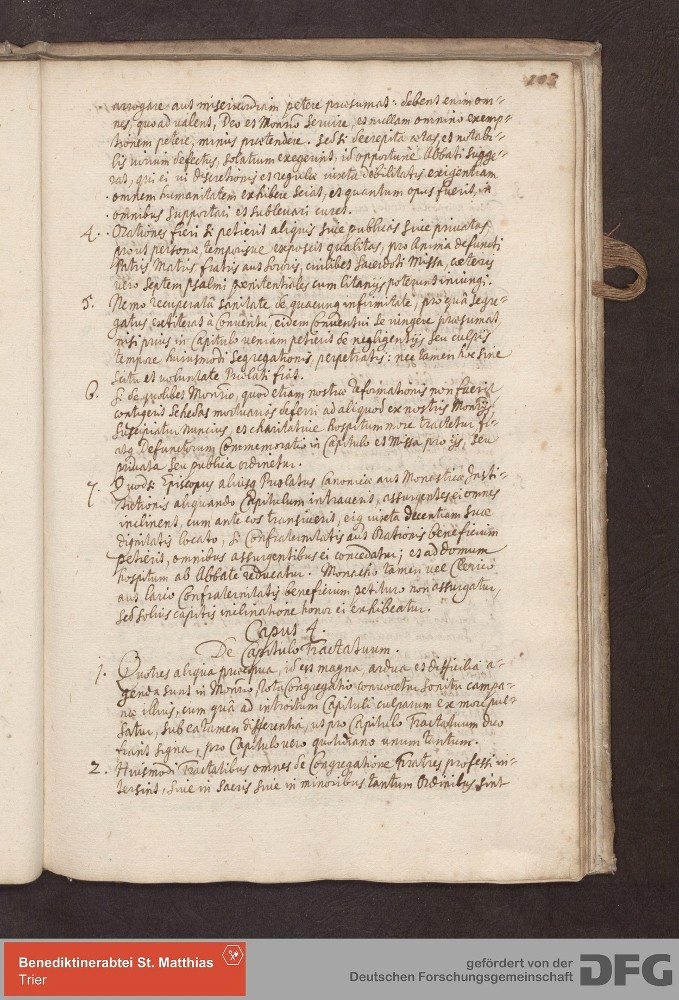 103
arrogare aut misericordiam petere præsumat: debent enim om-
nes, quoad valent, Deo et Monrio servire, et nullam omnino exemp-
tionem petere, minus prætendere. Sed si decrepita ætas, et notabi-
lis virium defectus, solatium exegerint, id opportune Abbati sugge-
rat, qui ei in discretionis et regulæ iuxta debilitatis exigentiam
omnem humanitatem exhibere sciat, et quantum opus fuerit, in
omnibus supportari et sublevari curet.
4. Orationes fieri si petierit aliquis sive publicas sive privatas,
prout personæ temporisve exposcit qualitas, pro Anima defuncti
Patris Matris fratris aut sororis, cuilibet Sacerdoti Missa, cæteris
vero septem psalmi pænitentiales cum litanijs poterunt iniungi.
5. Nemo recuperatâ sanitate de quacunq infirmitate, pro quâ segre-
gatus extiterat à Conventu, eidem Conventui se iungere præsumat,
nisi prius in Capitulo veniam petierit de negligentijs seu culpis
tempore huiusmodi segregationis perpetratis: nec tamen hoc sine
scitu et voluntate Prælati fiat.
6. Si de quolibet Monrio, quod etiam nostræ Reformationis non fuerit
contigerit schedas mortuarias deferri ad aliquod ex nostris Monrijs,
suscipiatur nuncius, et charitative hospitum more tractetur, fi-
atq Defunctorum Commemoratio in Capitulo et Missa pro ijs, seu
privata seu publica ordinetur.
7. Quodsi Episcopus aliusq Prælatus Canonicæ aut Monasticæ Insti-
tutionis aliquando Capitulum intraverit, assurgentes ei omnes
inclinent, cum ante eos transiverit, eiq iuxta decentiam suæ
dignitatis locato, si Confraternitatis aut Orationis beneficium
petierit, omnibus assurgentibus ei concedatur; et ad domum
hospitum ab Abbate reducatur. Monacho tamen vel Clerico
aut laico Confraternitatis beneficium petituro non assurgatur,
sed solius capitis inclinatione honor ei exhibeatur.
Caput 4.
De Capitulo Tractatuum.
1. Quoties aliqua præcipua, id est magna ardua et difficilia a-
genda sunt in Monrio, tota Congregatio convocetur sonitu campa-
næ illius, cum quâ ad introitum Capituli culparum ex more pul-
satur, sub ea tamen differentia, ut pro Capitulo Tractatuum duo
fiant signa, pro Capitulo vero quotidiano unum tantum.
2. Huiusmodi Tractatibus omnes de Congregatione Fratres professi in-
tersint, sive in sacris sive in minoribus tantum Ordinibus sint
Benediktinerabtei St. Matthias
Trier
gefördert von der
Deutschen Forschungsgemeinschaft
DFG